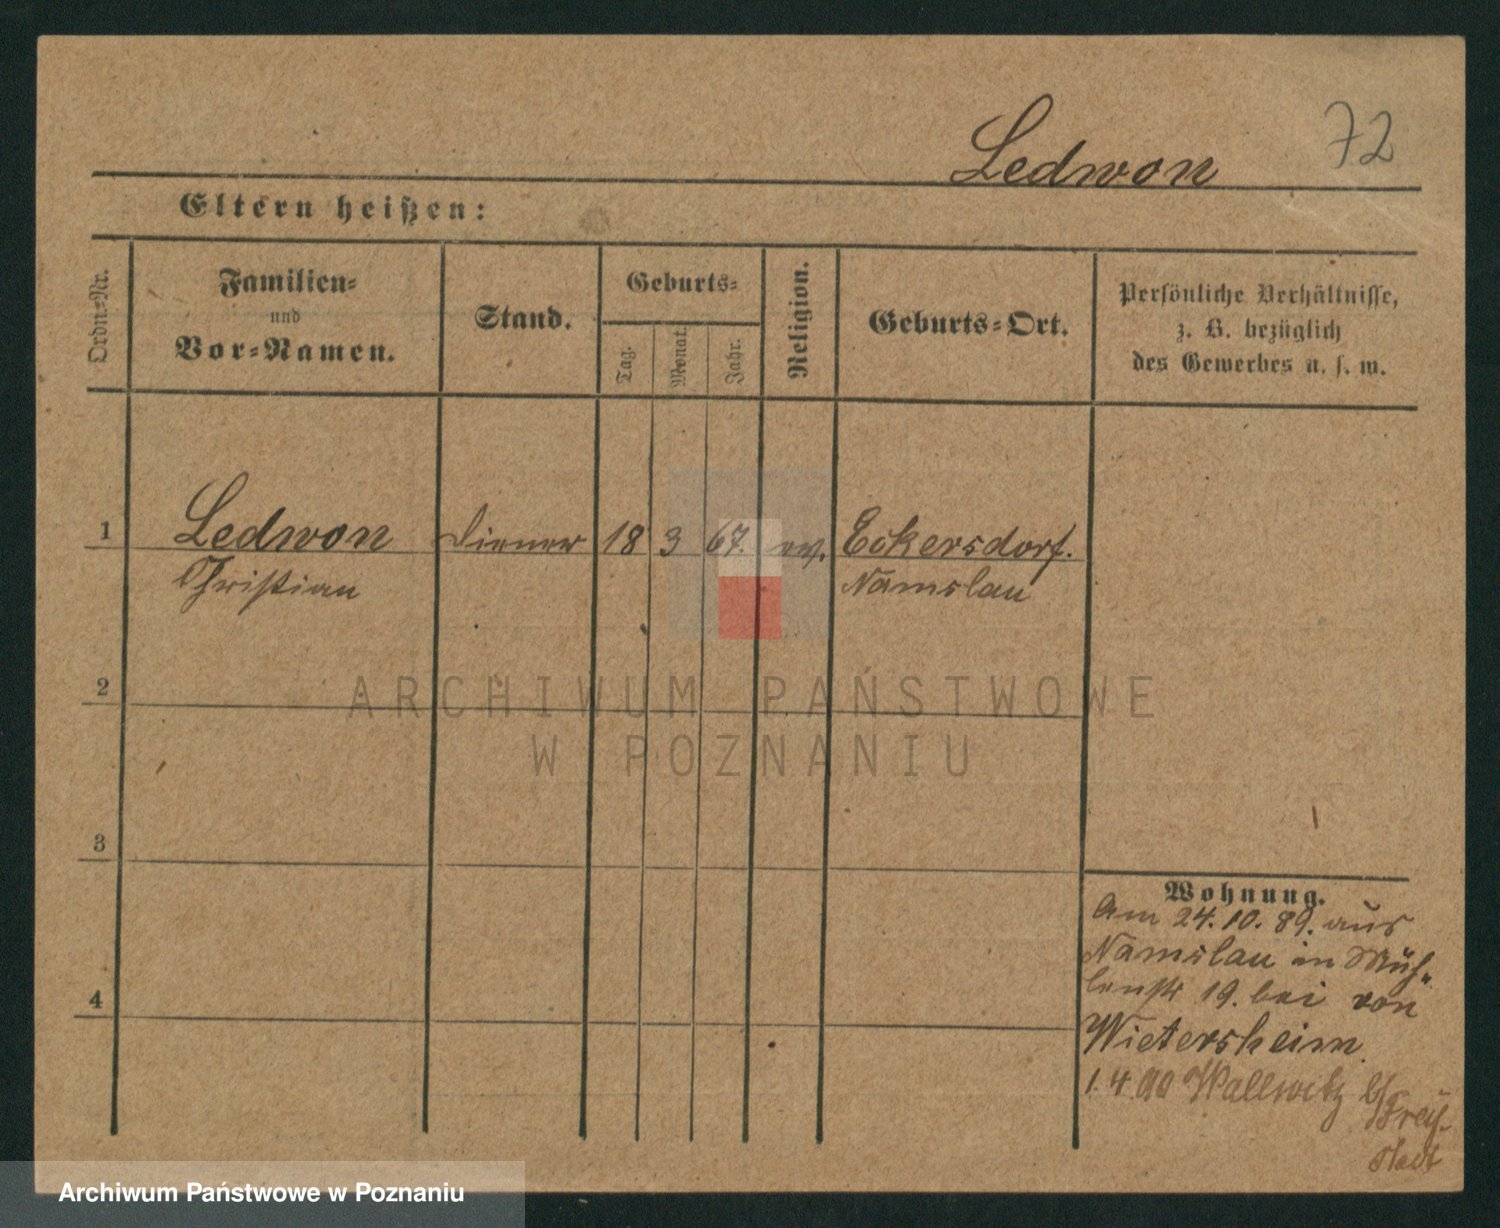 72
Ledwon
Eltern heißen:
Ordn.=Nr.
Familien=
und
Vor=Namen.
Stand.
Geburts=
Tag.
Monat.
Jahr.
Religion.
Geburts=Ort.
Persönliche Verhältnisse,
z. B. bezüglich
des Gewerbes u. s. w.
1
Ledwon Diener 18 3 67. ev. Eckersdorf.
Christian Namslau
ARCHIWUM PAŃSTWOWE
W POZNANIU
2
3
4
Wohnung.
Am 24.10.89. aus
Namslau in Müh=
lenstr 19. bei von
Wietersheim.
1.4.90 Wallwitz b/
Frey-
stadt
Archiwum Państwowe w Poznaniu